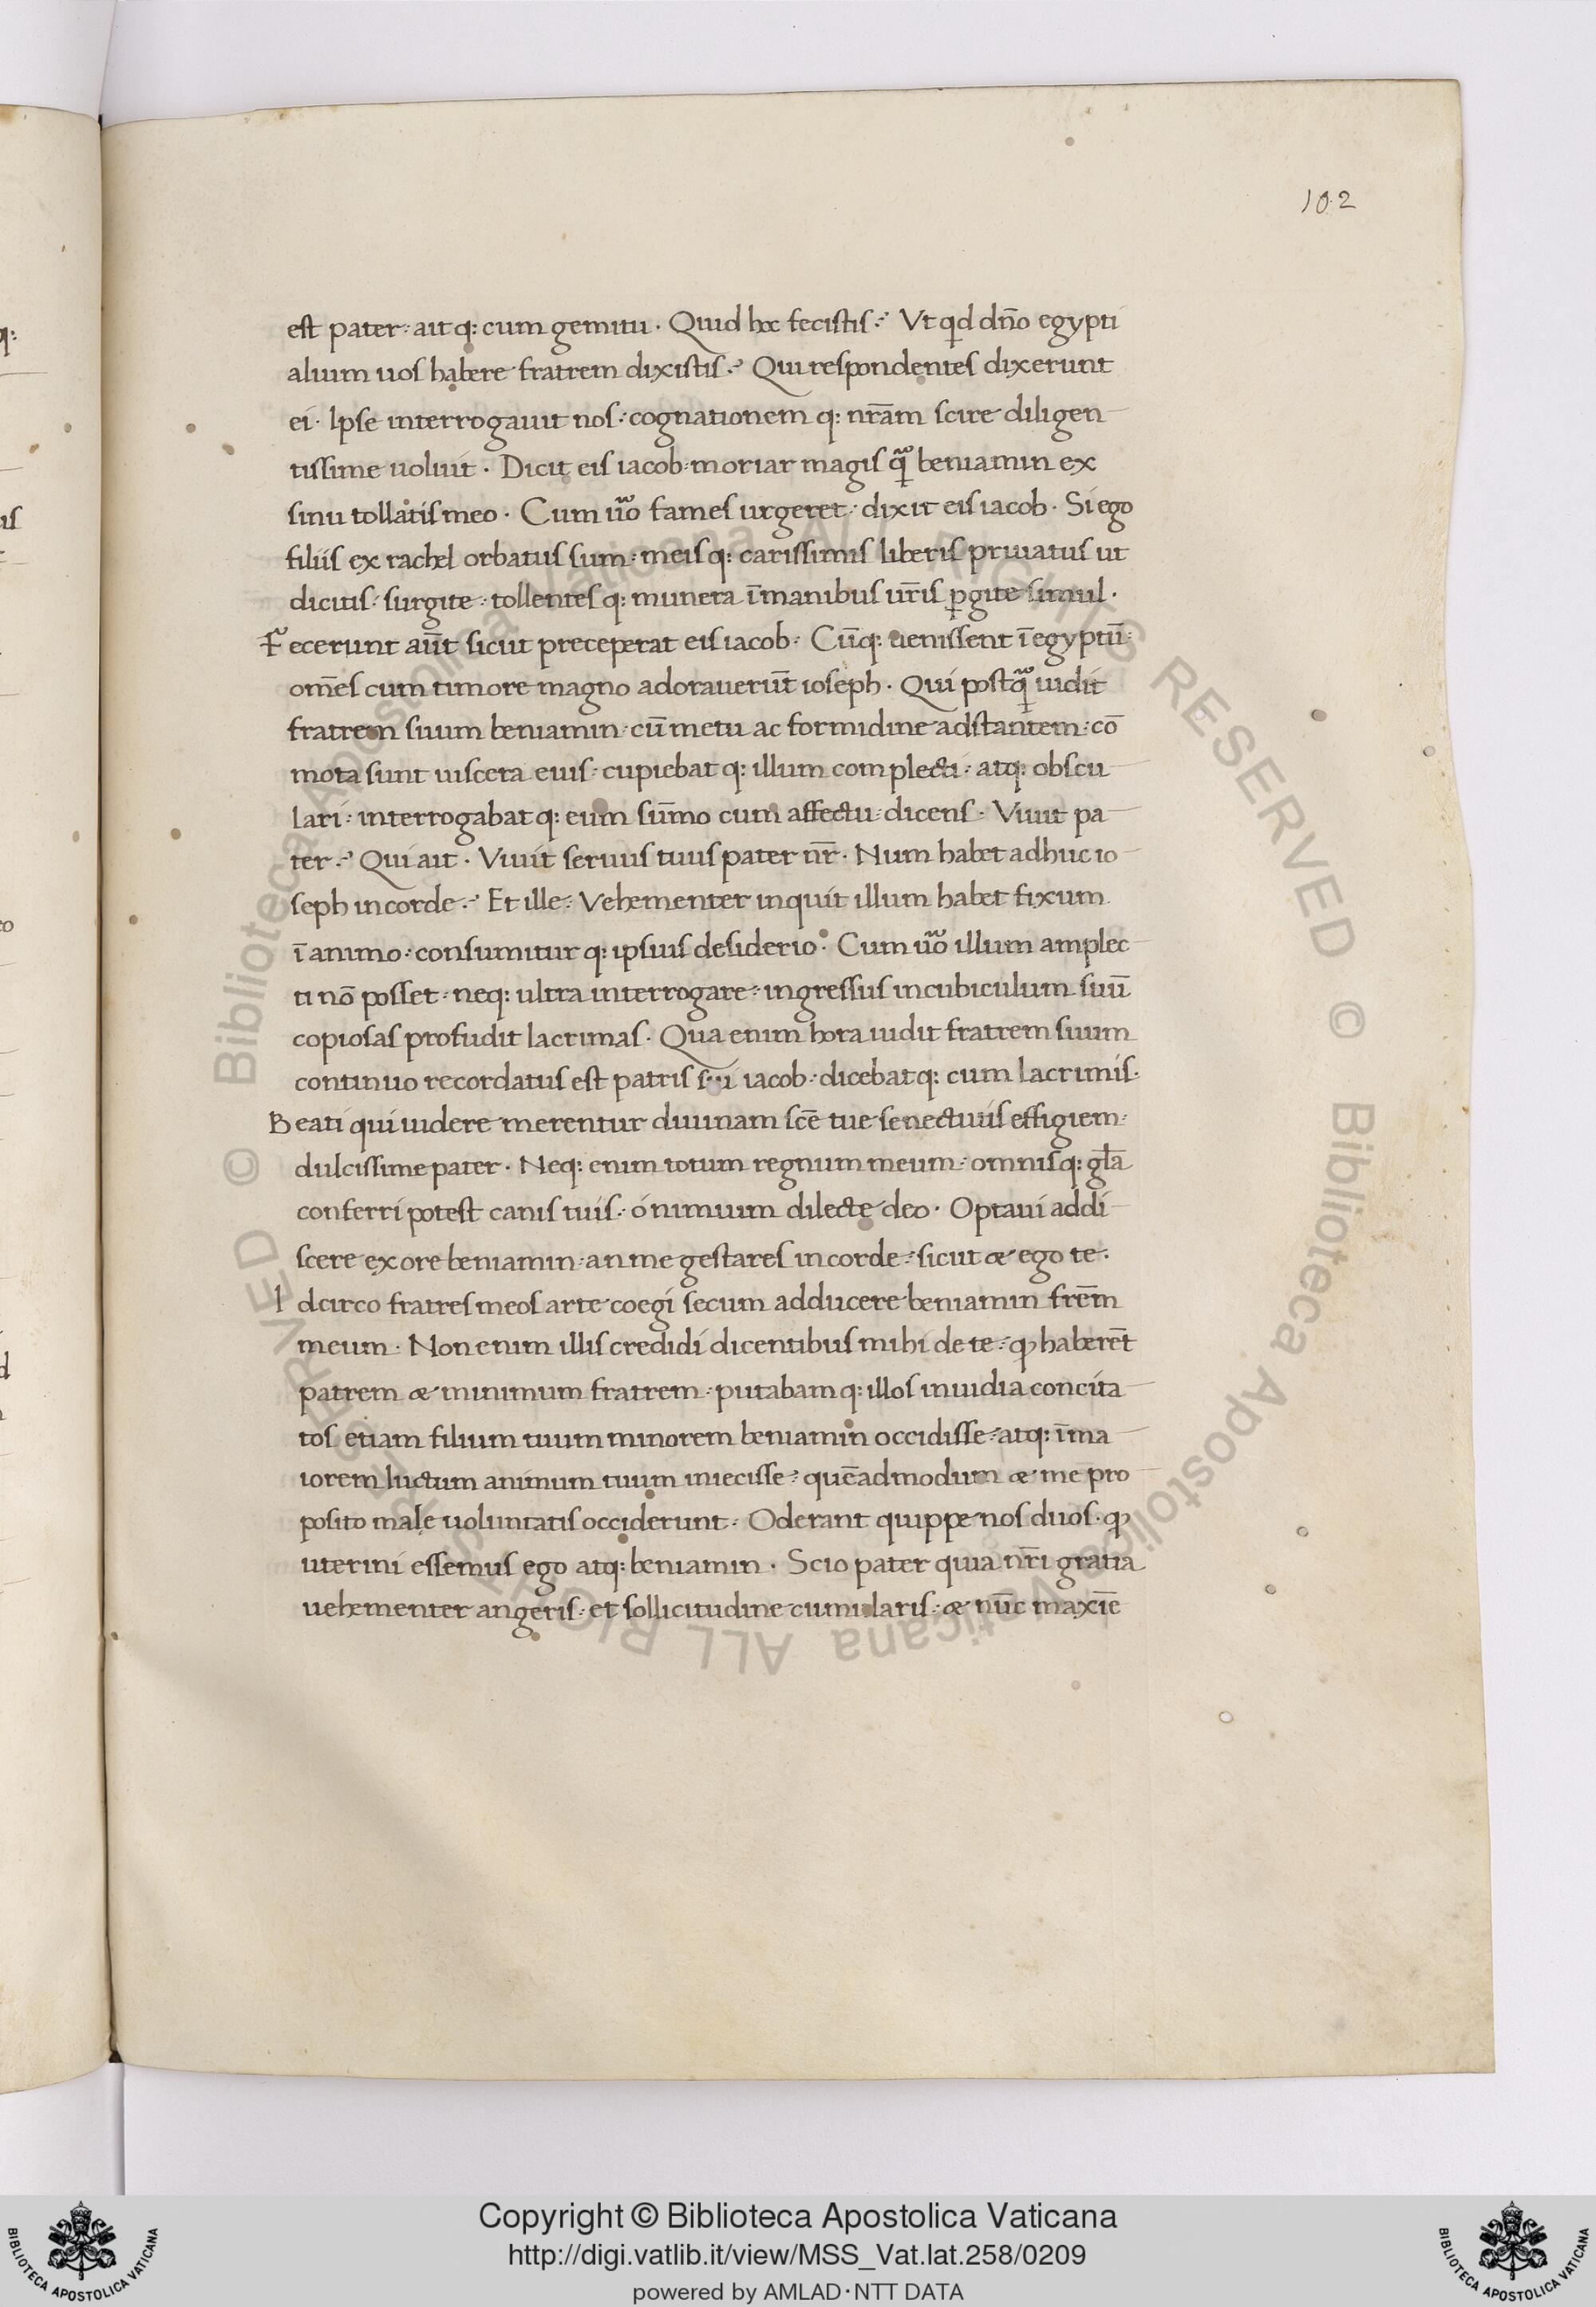 102
est pater: ait q: cum gemitu. Quid hoc fecistis? Vt qd dño egypti
alium uos habere fratrem dixistis? Qui respondentes dixerunt
ei. Ipse interrogauit nos: cognationem q: nr̄am scire diligen
tissime uoluit. Dicit eis iacob: moriar magis q̃ beniamin ex
sinu tollatis meo. Cum u͂o fames urgeret: dixit eis iacob. Si ego
filiis ex rachel orbatus sum: meis q: carissimis liberis priuatus ut
dicitis: surgite: tollentes q: munera ī manibus ur̄is ꝑgite simul.
Fecerunt aūt sicut preceperat eis iacob. Cūq: uenissent ī egyptū:
om̄es cum timore magno adorauerūt ioseph. Qui postq̃ uidit
fratrem suum beniamin: cū metu ac formidine adstantem: cō
mota sunt uiscera eius: cupiebat q: illum complecti: atq: obscu
lari: interrogabat q: eum sūmo cum affectu: dicens. Viuit pa
ter? Qui ait. Viuit seruus tuus pater nr̄. Num habet adhuc io
seph in corde? Et ille: Vehementer inquit illum habet fixum
ī animo: consumitur q: ipsius desiderio. Cum u͂o illum amplec
ti nō posset: neq: ultra interrogare: ingressus in cubiculum suū
copiosas profudit lacrimas. Qua enim hora uidit fratrem suum
continuo recordatus est patris sui iacob: dicebat q: cum lacrimis.
Beati qui uidere merentur diuinam scē tue senectutis effigiem:
dulcissime pater. Neq: enim totum regnum meum: omnisq: gl̄a
conferri potest canis tuis: ó nimium dilecte deo. Optaui addi
scere ex ore beniamin: an me gestares in corde: sicut æ ego te.
Idcirco fratres meos arte coegi secum adducere beniamin frēm
meum. Non enim illis credidi dicentibus mihi de te: ꝙ haberēt
patrem æ minimum fratrem: putabam q: illos inuidia concita
tos etiam filium tuum minorem beniamin occidisse: atq: ī ma
iorem luctum animum tuum iniecisse: quēadmodum æ me pro
posito male uoluntatis occiderunt. Oderant quippe nos duos. ꝙ
uterini essemus ego atq: beniamin. Scio pater quia nr̄i gratia
uehementer angeris: et sollicitudine cumularis: æ nūc maxīe
Copyright © Biblioteca Apostolica Vaticana
http://digi.vatlib.it/view/MSS_Vat.lat.258/0209
powered by AMLAD·NTT DATA
BIBLIOTECA APOSTOLICA VATICANA
BIBLIOTECA APOSTOLICA VATICANA
© Biblioteca Apostolica Vaticana ALL RIGHTS RESERVED © Biblioteca Apostolica Vaticana ALL RIGHTS RESERVED